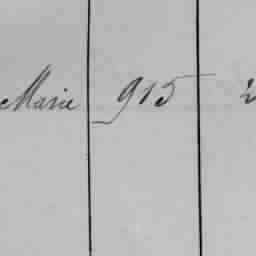 Marie 915